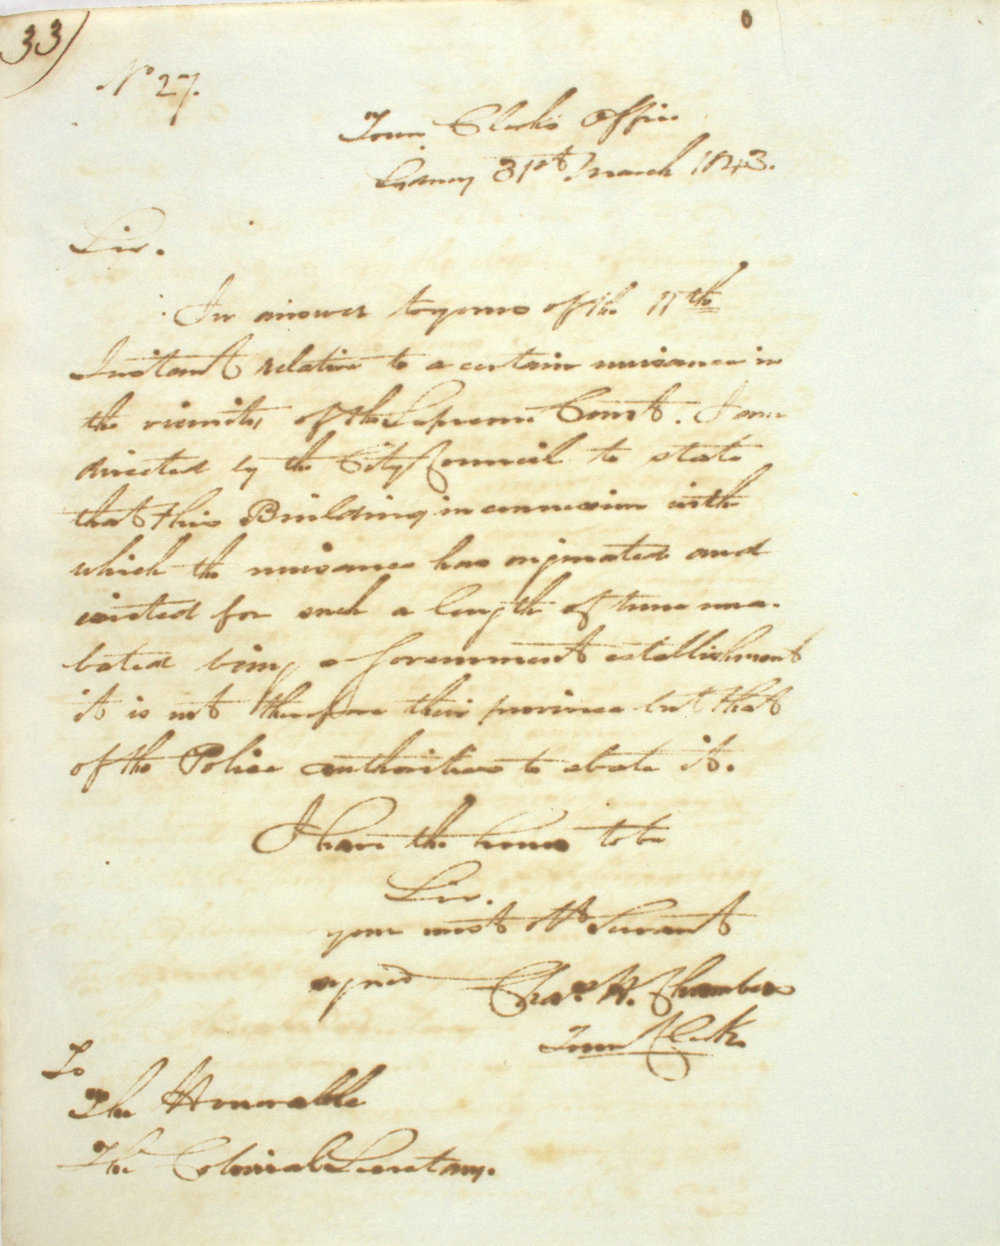 33)
No 27.
Town Clerk's Office
Sydney 31st March 1843.
Sir.
In answer to yours of the 11th
Instant relative to a certain nuisance in
the vicinity of the Supreme Court. I am
directed by the City Council to state
that this Building in connexion with
which the nuisance has originated and
existed for such a length of time una-
bated being a Government establishment
it is not therefore their province but that
of the Police authorities to abate it.
I have the honor to be
Sir.
your most obt Servant
signed Chas. H. Chambers
Town Clerk
To
The Honorable
The Colonial Secretary.